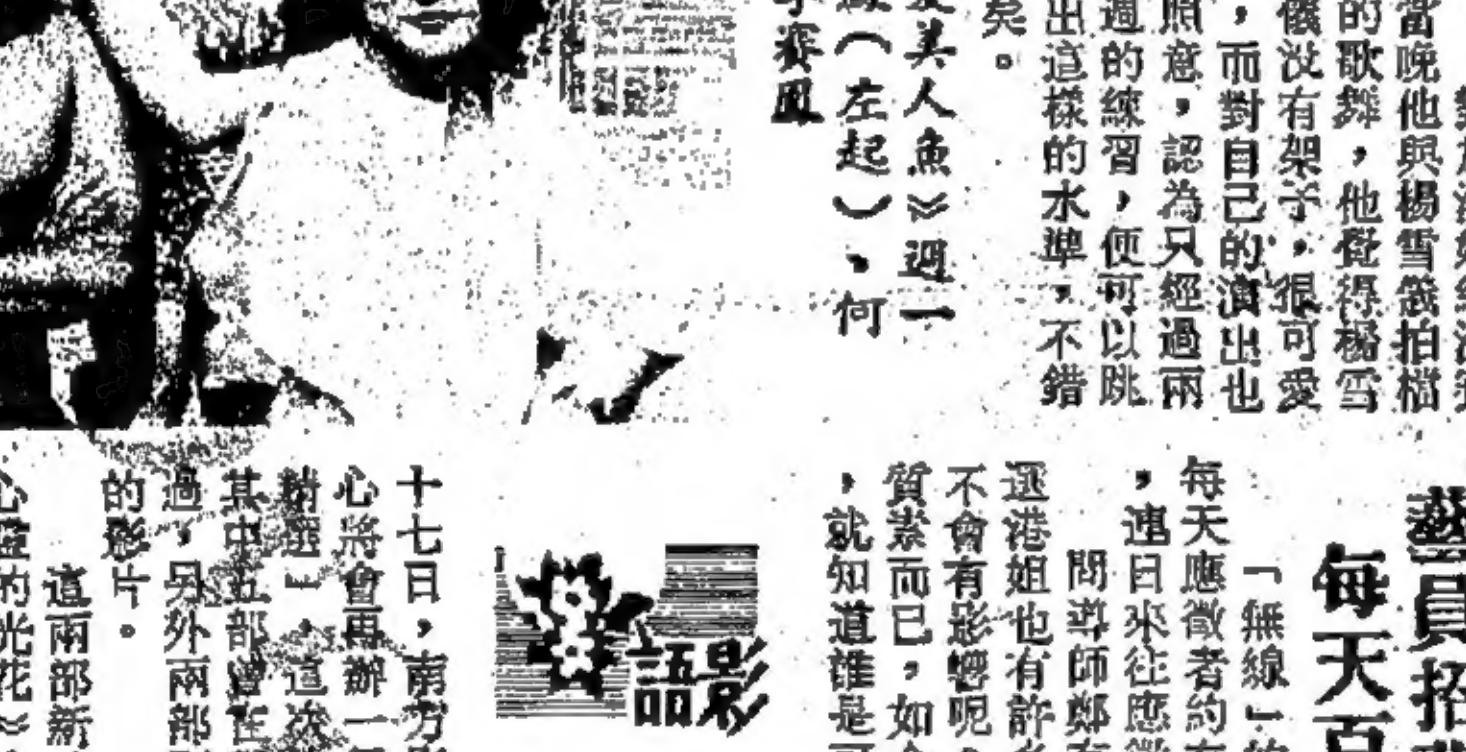 當晚他與楊雪儀拍檔
的歌舞，他覺得楊雪
儀沒有架子，很可愛
，而對自己的演出也
照意，認為只經過兩
週的練習，便可以跳
出這樣的水準，不錯
矣。
美人魚》週一
（左起）、何
賽鳳
藝員招
每天百
「無線」的
每天應徵者約
，連日來往應徵
問導師鄭
選港姐也有許
不會有影響呢
質素而已，如
，就知道誰是
影語
十七日，南方影
心將會再辦一
精選」，這次
其中五部曾在
過，另外兩部
的影片。
這兩部新
的光花《